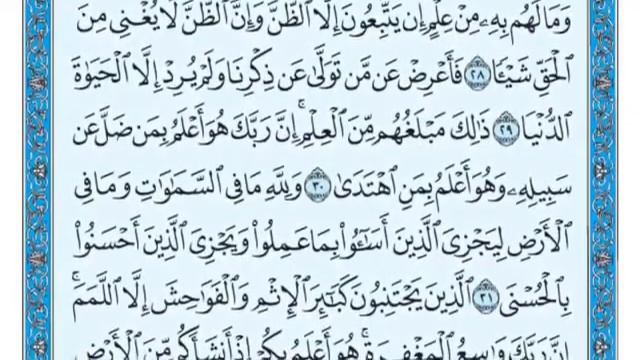 وَمَا لَهُم بِهِۦ مِنْ عِلْمٍ إِن يَتَّبِعُونَ إِلَّا ٱلظَّنَّ وَإِنَّ ٱلظَّنَّ لَا يُغْنِى مِنَ
ٱلْحَقِّ شَيْـًٔا ٢٨ فَأَعْرِضْ عَن مَّن تَوَلَّىٰ عَن ذِكْرِنَا وَلَمْ يُرِدْ إِلَّا ٱلْحَيَوٰةَ
ٱلدُّنْيَا ٢٩ ذَٰلِكَ مَبْلَغُهُم مِّنَ ٱلْعِلْمِ ۚ إِنَّ رَبَّكَ هُوَ أَعْلَمُ بِمَن ضَلَّ عَن
سَبِيلِهِۦ وَهُوَ أَعْلَمُ بِمَنِ ٱهْتَدَىٰ ٣٠ وَلِلَّهِ مَا فِى ٱلسَّمَٰوَٰتِ وَمَا فِى
ٱلْأَرْضِ لِيَجْزِىَ ٱلَّذِينَ أَسَٰٓـُٔوا۟ بِمَا عَمِلُوا۟ وَيَجْزِىَ ٱلَّذِينَ أَحْسَنُوا۟
بِٱلْحُسْنَى ٣١ ٱلَّذِينَ يَجْتَنِبُونَ كَبَٰٓئِرَ ٱلْإِثْمِ وَٱلْفَوَٰحِشَ إِلَّا ٱللَّمَمَ ۚ
إِنَّ رَبَّكَ وَٰسِعُ ٱلْمَغْفِرَةِ ۚ هُوَ أَعْلَمُ بِكُمْ إِذْ أَنشَأَكُم مِّنَ ٱلْأَرْضِ